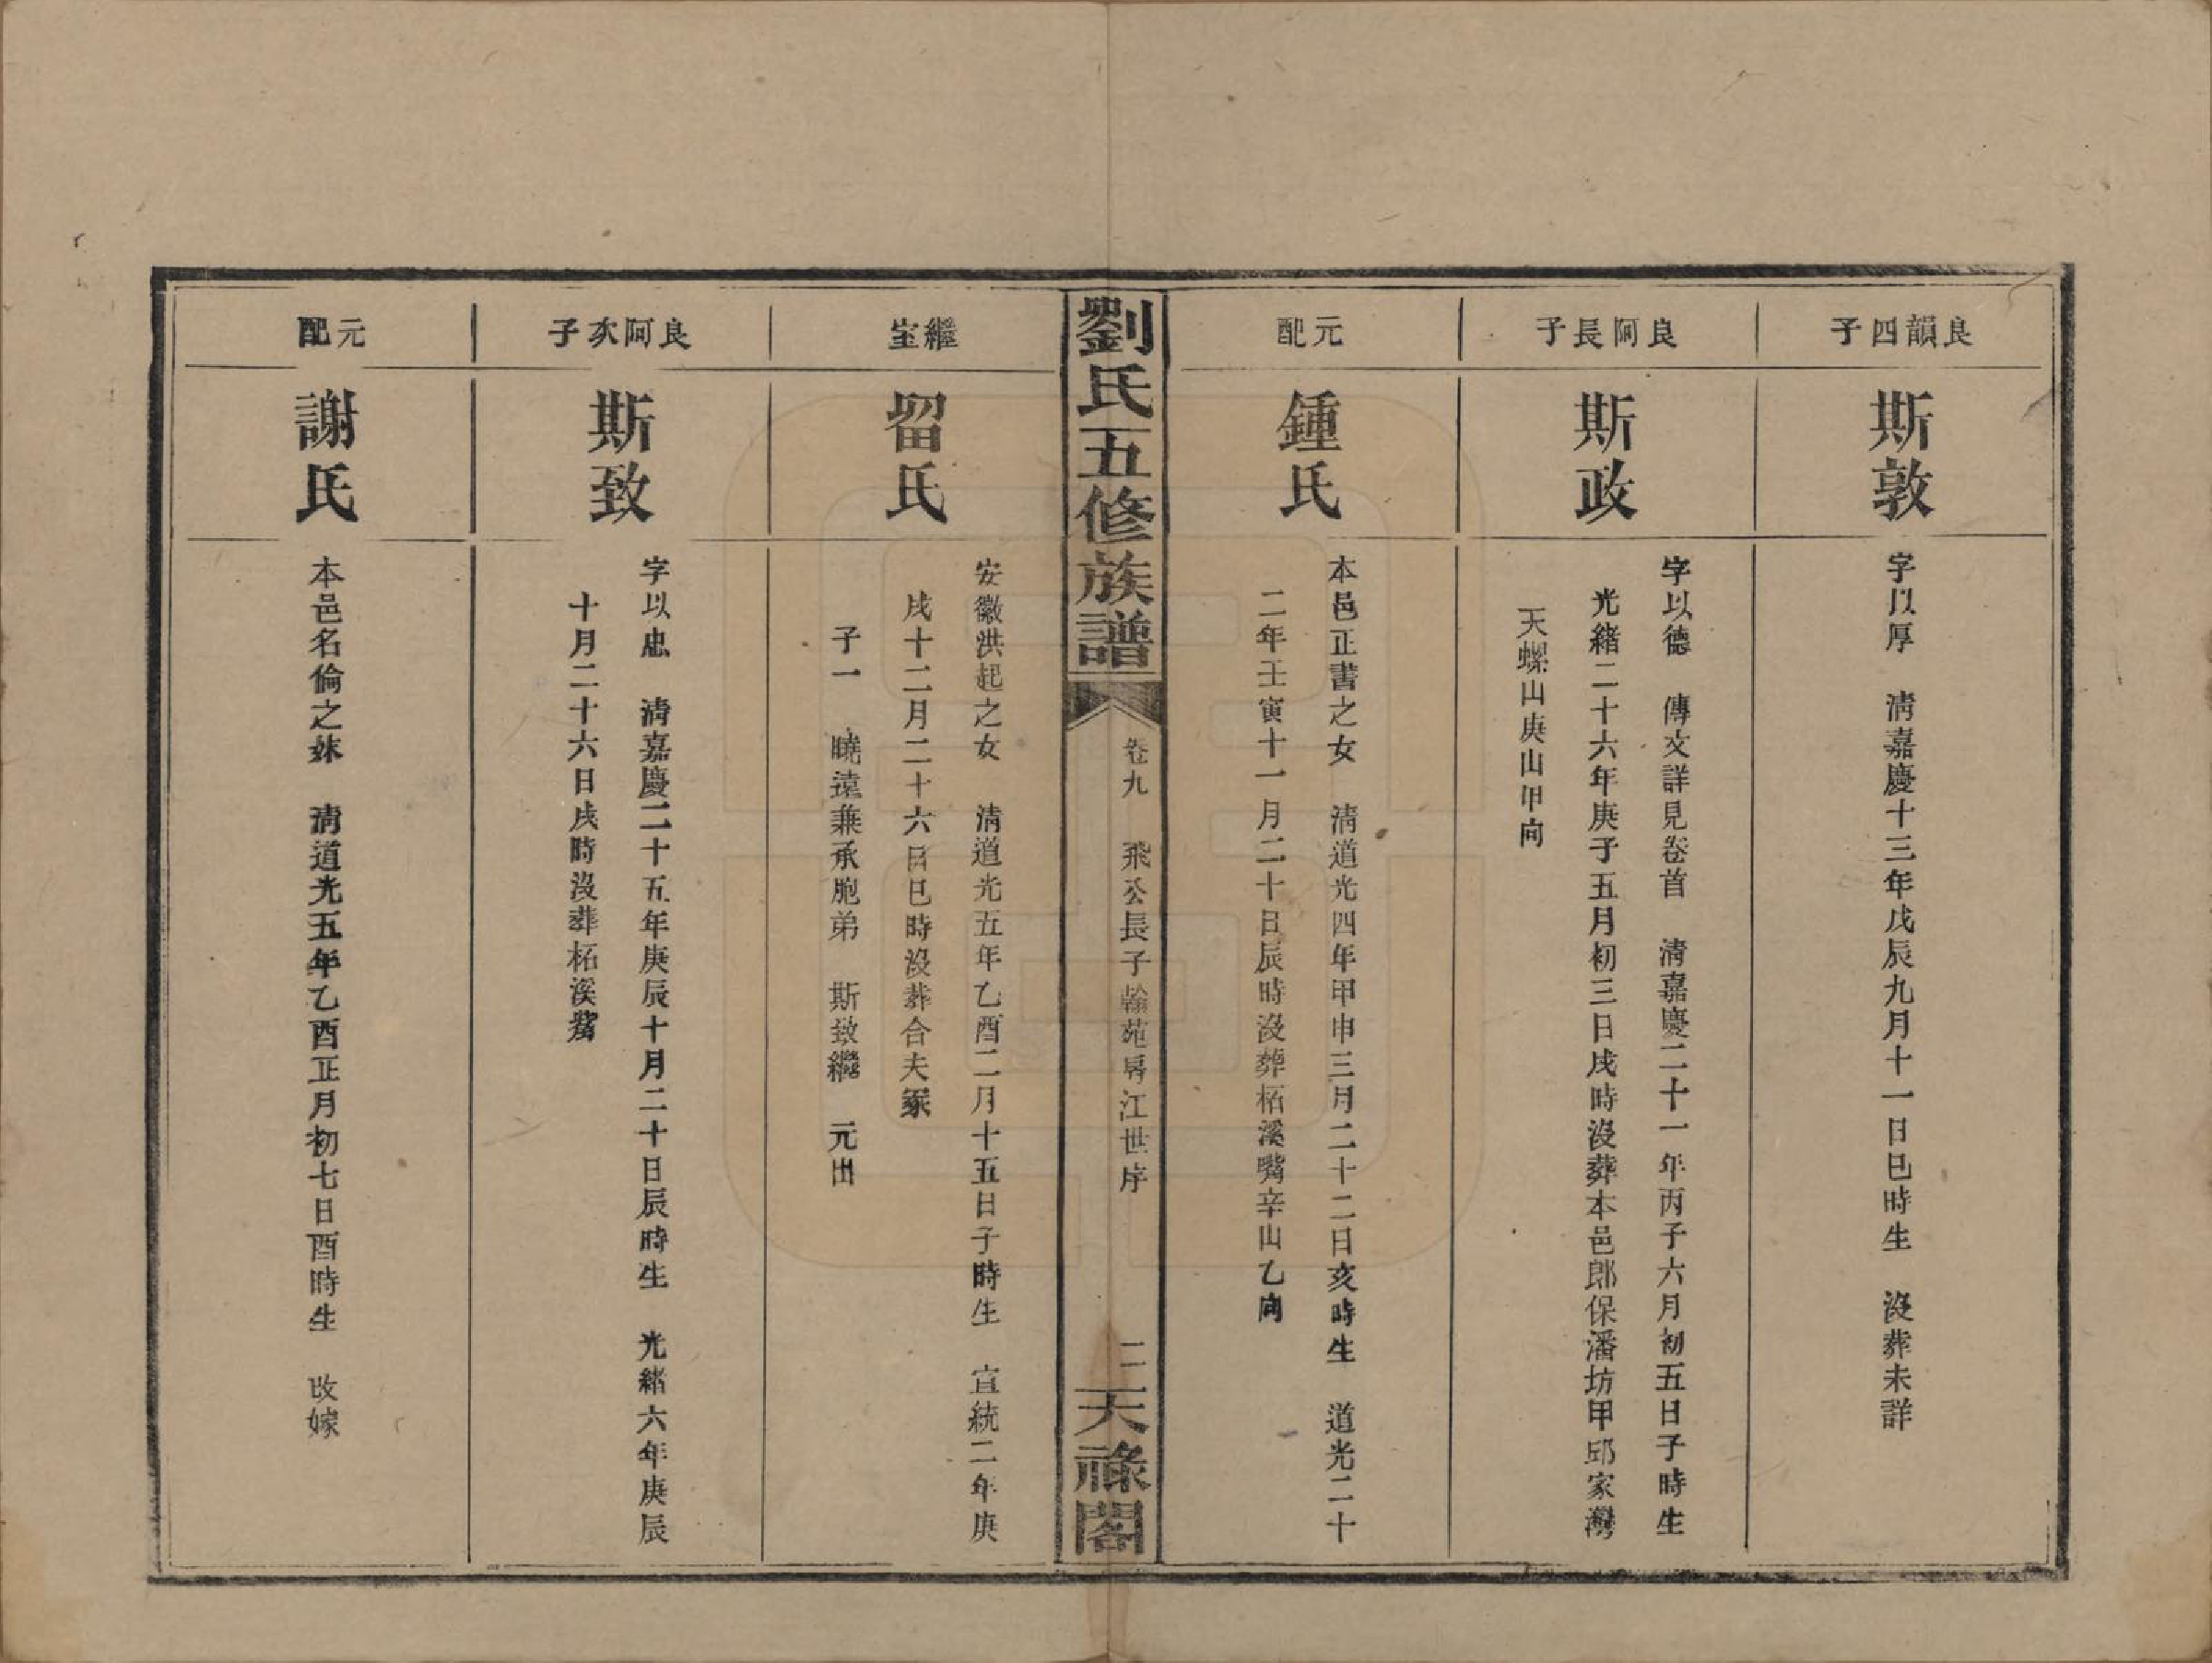 良韻四子
斯敦
字以厚　清嘉慶十三年戊辰九月十一日巳時生　沒葬未詳
良阿長子
斯政
字以德　傳文詳見卷首　清嘉慶二十一年丙子六月初五日子時生
光緒二十六年庚子五月初三日戌時沒葬本邑郎保潘坊甲邱家灣
天螺山庚山甲向
元配
鍾氏
本邑正書之女　清道光四年甲申三月二十二日亥時生　道光二十
二年壬寅十一月二十日辰時沒葬柘溪嘴辛山乙向
劉氏五修族譜
卷九　飛公長子翰苑房江世序
二
天祿閣
繼室
留氏
安徽洪起之女　清道光五年乙酉二月十五日子時生　宣統二年庚
戌十二月二十六日巳時沒葬合夫冢
子一　曉遠兼承胞弟　斯致繼　元出
良阿次子
斯致
字以忠　清嘉慶二十五年庚辰十月二十日辰時生　光緒六年庚辰
十月二十六日戌時沒葬柘溪嘴
元配
謝氏
本邑名倫之妹　清道光五年乙酉正月初七日酉時生　改嫁